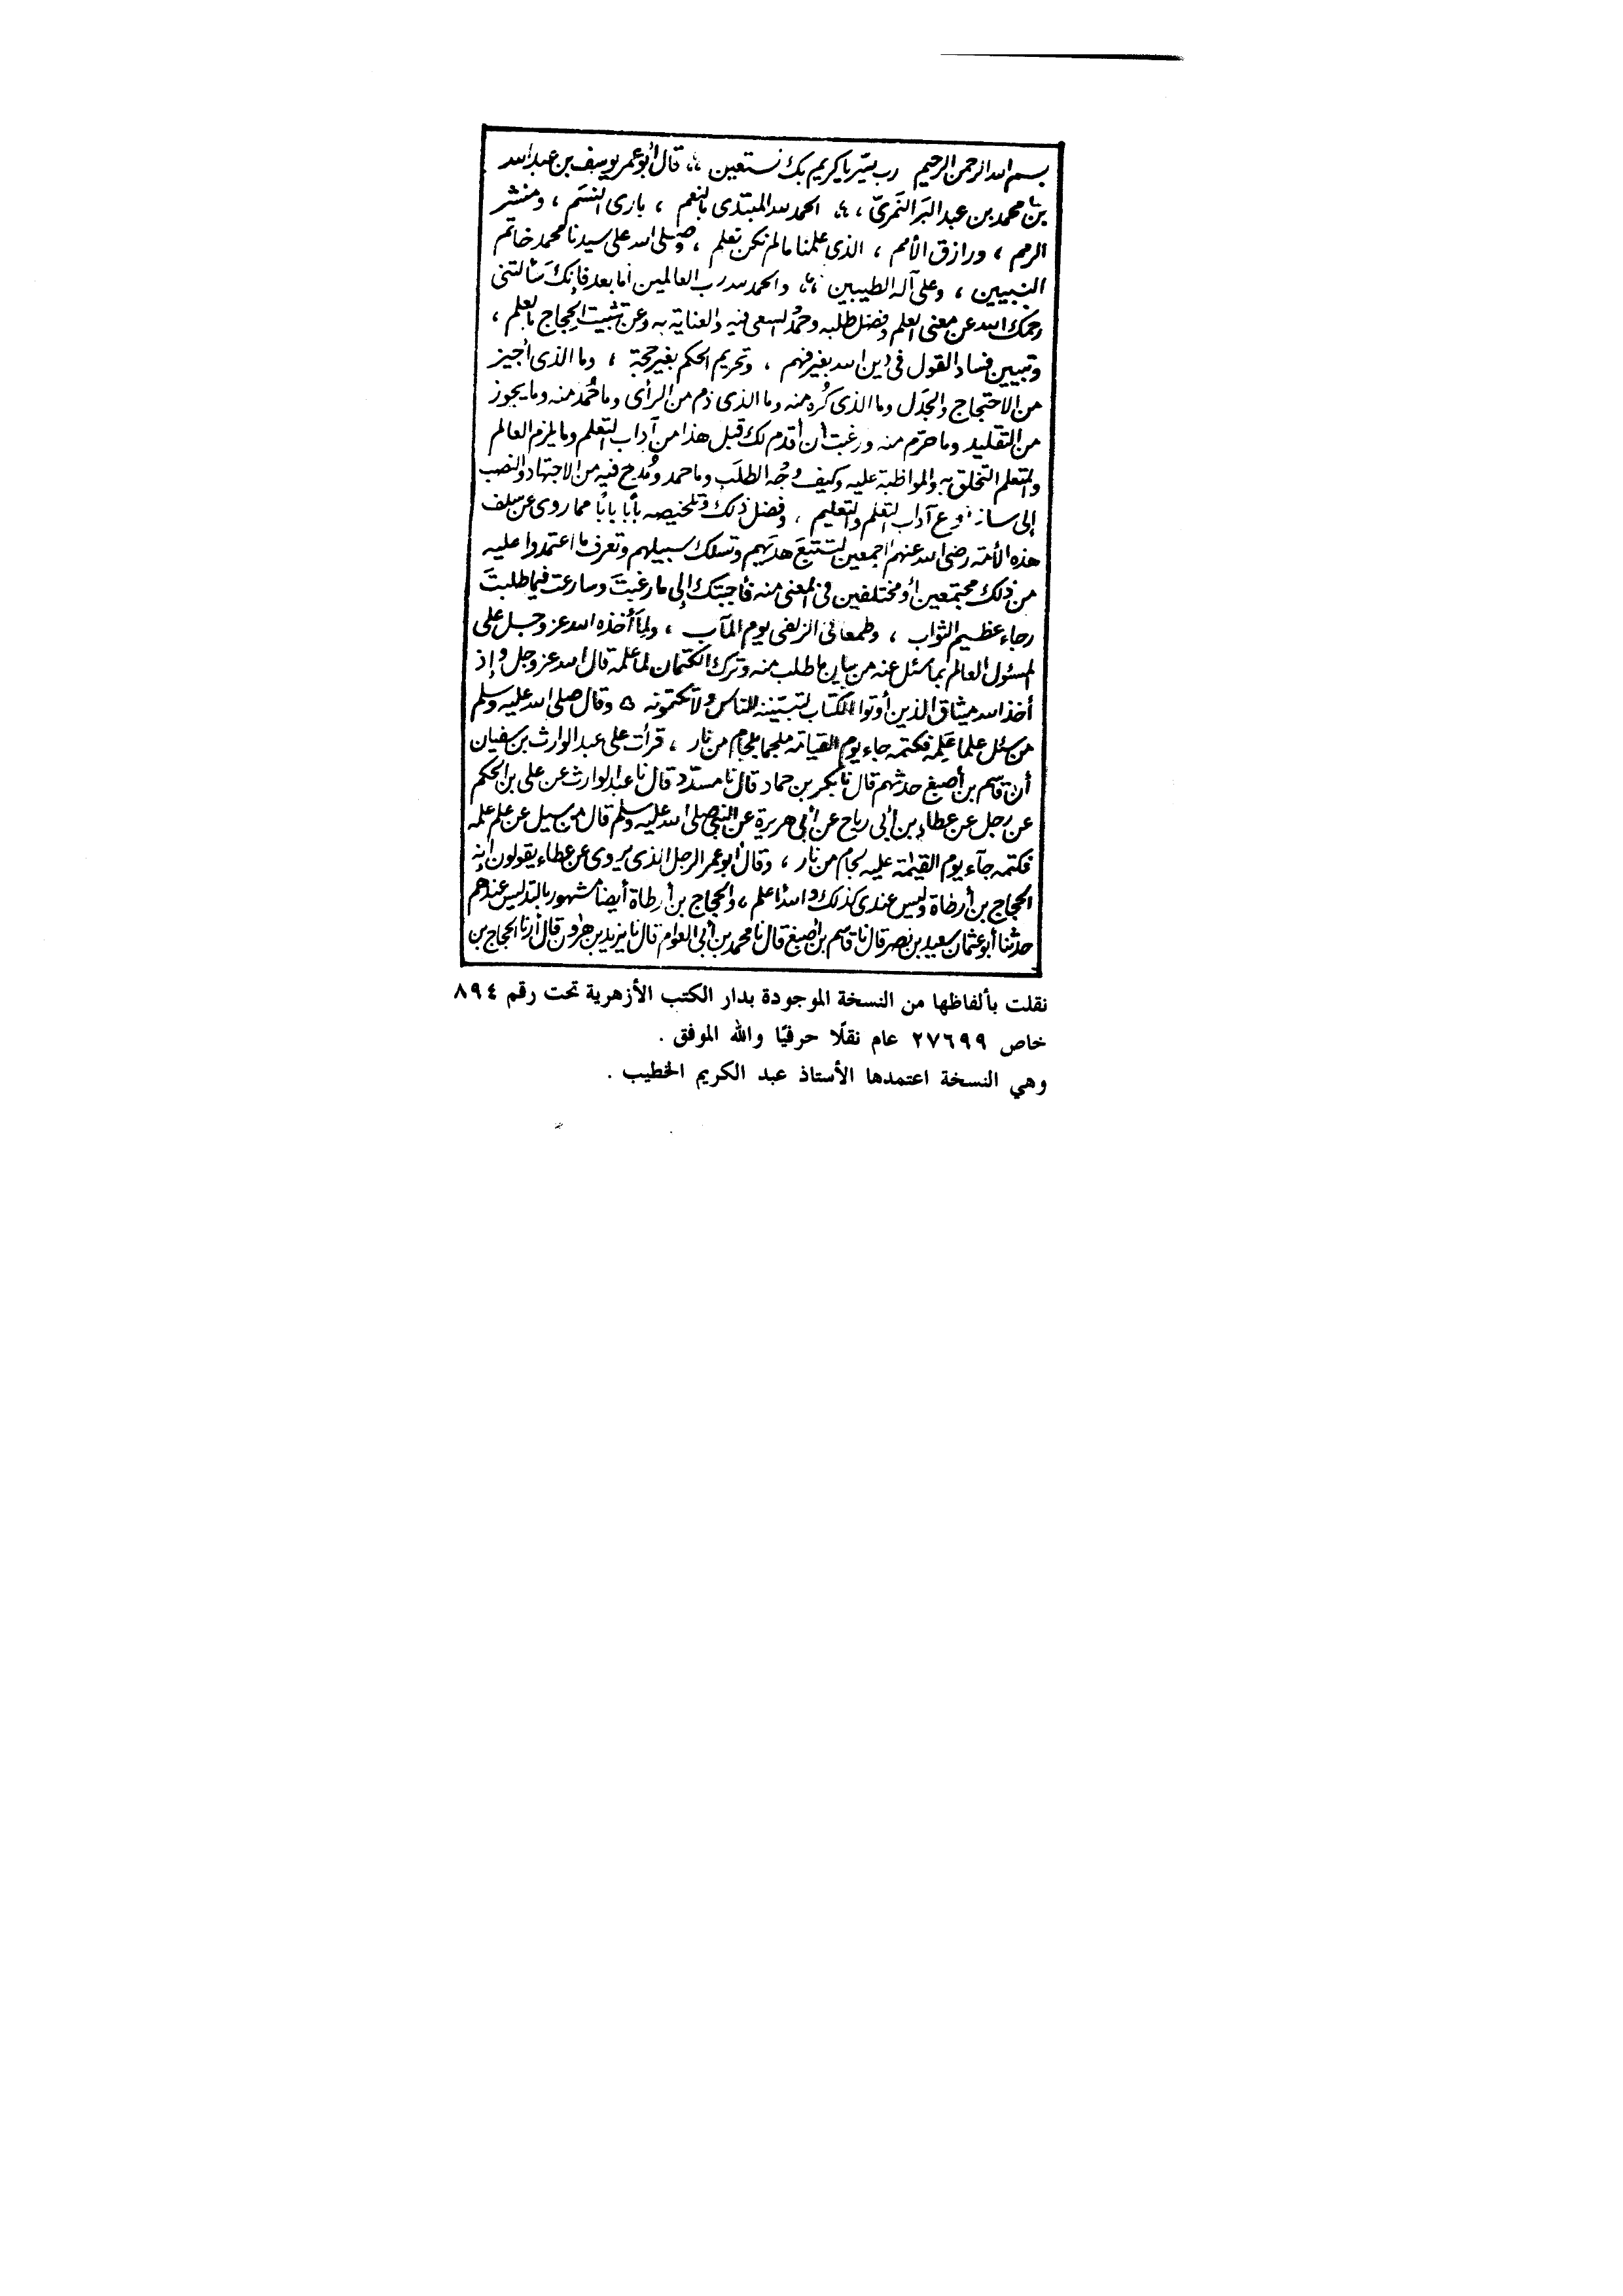 بسم الله الرحمن الرحيم رب يسّر يا كريم بك نستعين ،، قال أبو عمر يوسف بن عبد الله
بن محمد بن عبد البَر النَمريّ ،، الحمد لله المبتدى بالنعم ، بارى النسَم ، ومنشر
الرمم ، ورازق الأمم ، الذى علمنا ما لم نكن نعلم ، وصلى الله على سيدنا محمد خاتم
النبيين ، وعلى آله الطيبين ،، والحمد لله رب العالمين أما بعد فإنك سَألتنى
رحمك الله عن معنى العلم وفضل طلبه وحمْد السعى فيه والعناية به وعن تثبيت الحِجاج بالعلم ،
وتبيين فساد القول فى دين الله بغير فهم ، وتحريم الحكم بغير حجة ، وما الذى أجيز
من الاحتجاج والجَدَل وما الذى كُره منه وما الذى ذم من الرأى وما حُمد منه وما يجوز
من التقليد وما حرّم منه ورغبت أن أقدم لك قبل هذا من آداب التعلم وما يلزم العالم
والمتعلم التخلق به والمواظبة عليه وكيف وُجُه الطلَب وما حمد ومُدح فيه من الاجتهاد والنصب
إلى آداب التعلم والتعليم ، وفضل ذلك وتلخيصه بابا بابًا مما روى عن سلف
هذه الأمة رضى الله عنهم أجمعين لتتبعَ هديَهم وتسلك سبيلهم وتعرف ما اعتمدوا عليه
من ذلك مجتمعين أو مختلفين فى المعنى منه فأجبتك إلى ما رغبتَ وسارعت فيما طلبتَ
رجاء عظيم الثواب ، وطمعا فى الزلفى يوم المآب ، ولِمَا أخذه الله عز وجل على
المسئول العالم بما سئل عنه من بيان ما طلب منه وترك الكتمان لما علمه قال الله عز وجل وإذ
أخذ الله ميثاق الذين أوتوا الكتاب لتبيننه للناس ولا تكتمونه ۵ وقال صلى الله عليه وسلم
من سئل علما عَلِمه فكتمه جاء يوم القيامة ملجما بلجام من نار ، قرأت على عبد الوارث بن سفيان
أن قاسم بن أصبغ حدثهم قال نا بكر بن حماد قال نا مسدّد قال نا عبد الوارث عن على بن الحكم
عن رجل عن عطاء بن أبى رباح عن أبى هريرة عن النبى صلى الله عليه وسلم قال من سيل عن علم علمه
فكتمه جآء يوم القيامة عليه لجام من نار ، وقال أبو عمر الرجل الذى يروى عن عطاء يقولون إنه
الحجاج بن أرطاة وليس عندى كذلك والله أعلم ، والحجاج بن أرطاة أيضا مشهور بالتدليس عندهم
حدثنا أبو عثمان سعيد بن نصر قال نا قاسم بن أصبغ قال نا محمد بن أبى العوام قال نا يزيد بن هارون قال أرنا الحجاج بن
نقلت بألفاظها من النسخة الموجودة بدار الكتب الأزهرية تحت رقم ٨٩٤
خاص ٢٧٦٩٩ عام نقلًا حرفيًا والله الموفق .
وهي النسخة اعتمدها الأستاذ عبد الكريم الخطيب .